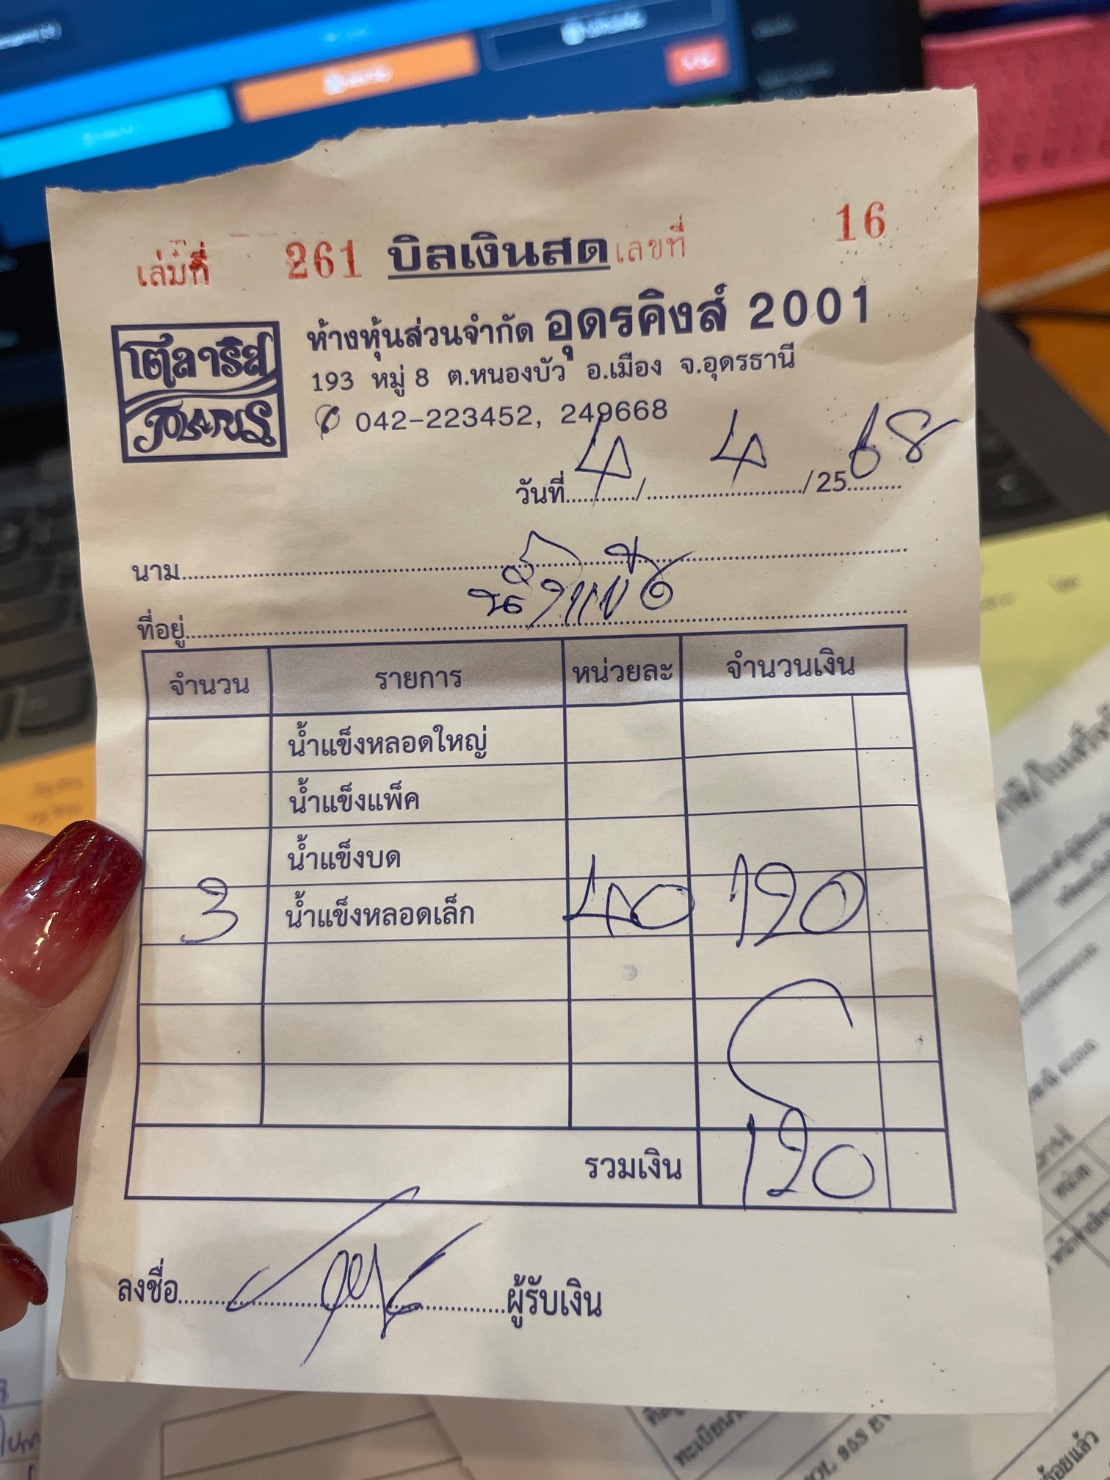 เล่มที่ 261 บิลเงินสด เลขที่ 16
โต๊ลาริส
ห้างหุ้นส่วนจำกัด อุดรคิงส์ 2001
193 หมู่ 8 ต.หนองบัว อ.เมือง จ.อุดรธานี
042-223452, 249668
วันที่ 4 / 4 /25 68
นาม
ที่อยู่
จำนวน รายการ หน่วยละ จำนวนเงิน
น้ำแข็งหลอดใหญ่
น้ำแข็งแพ็ค
น้ำแข็งบด
3 น้ำแข็งหลอดเล็ก 40 120
รวมเงิน 120
ลงชื่อ ผู้รับเงิน